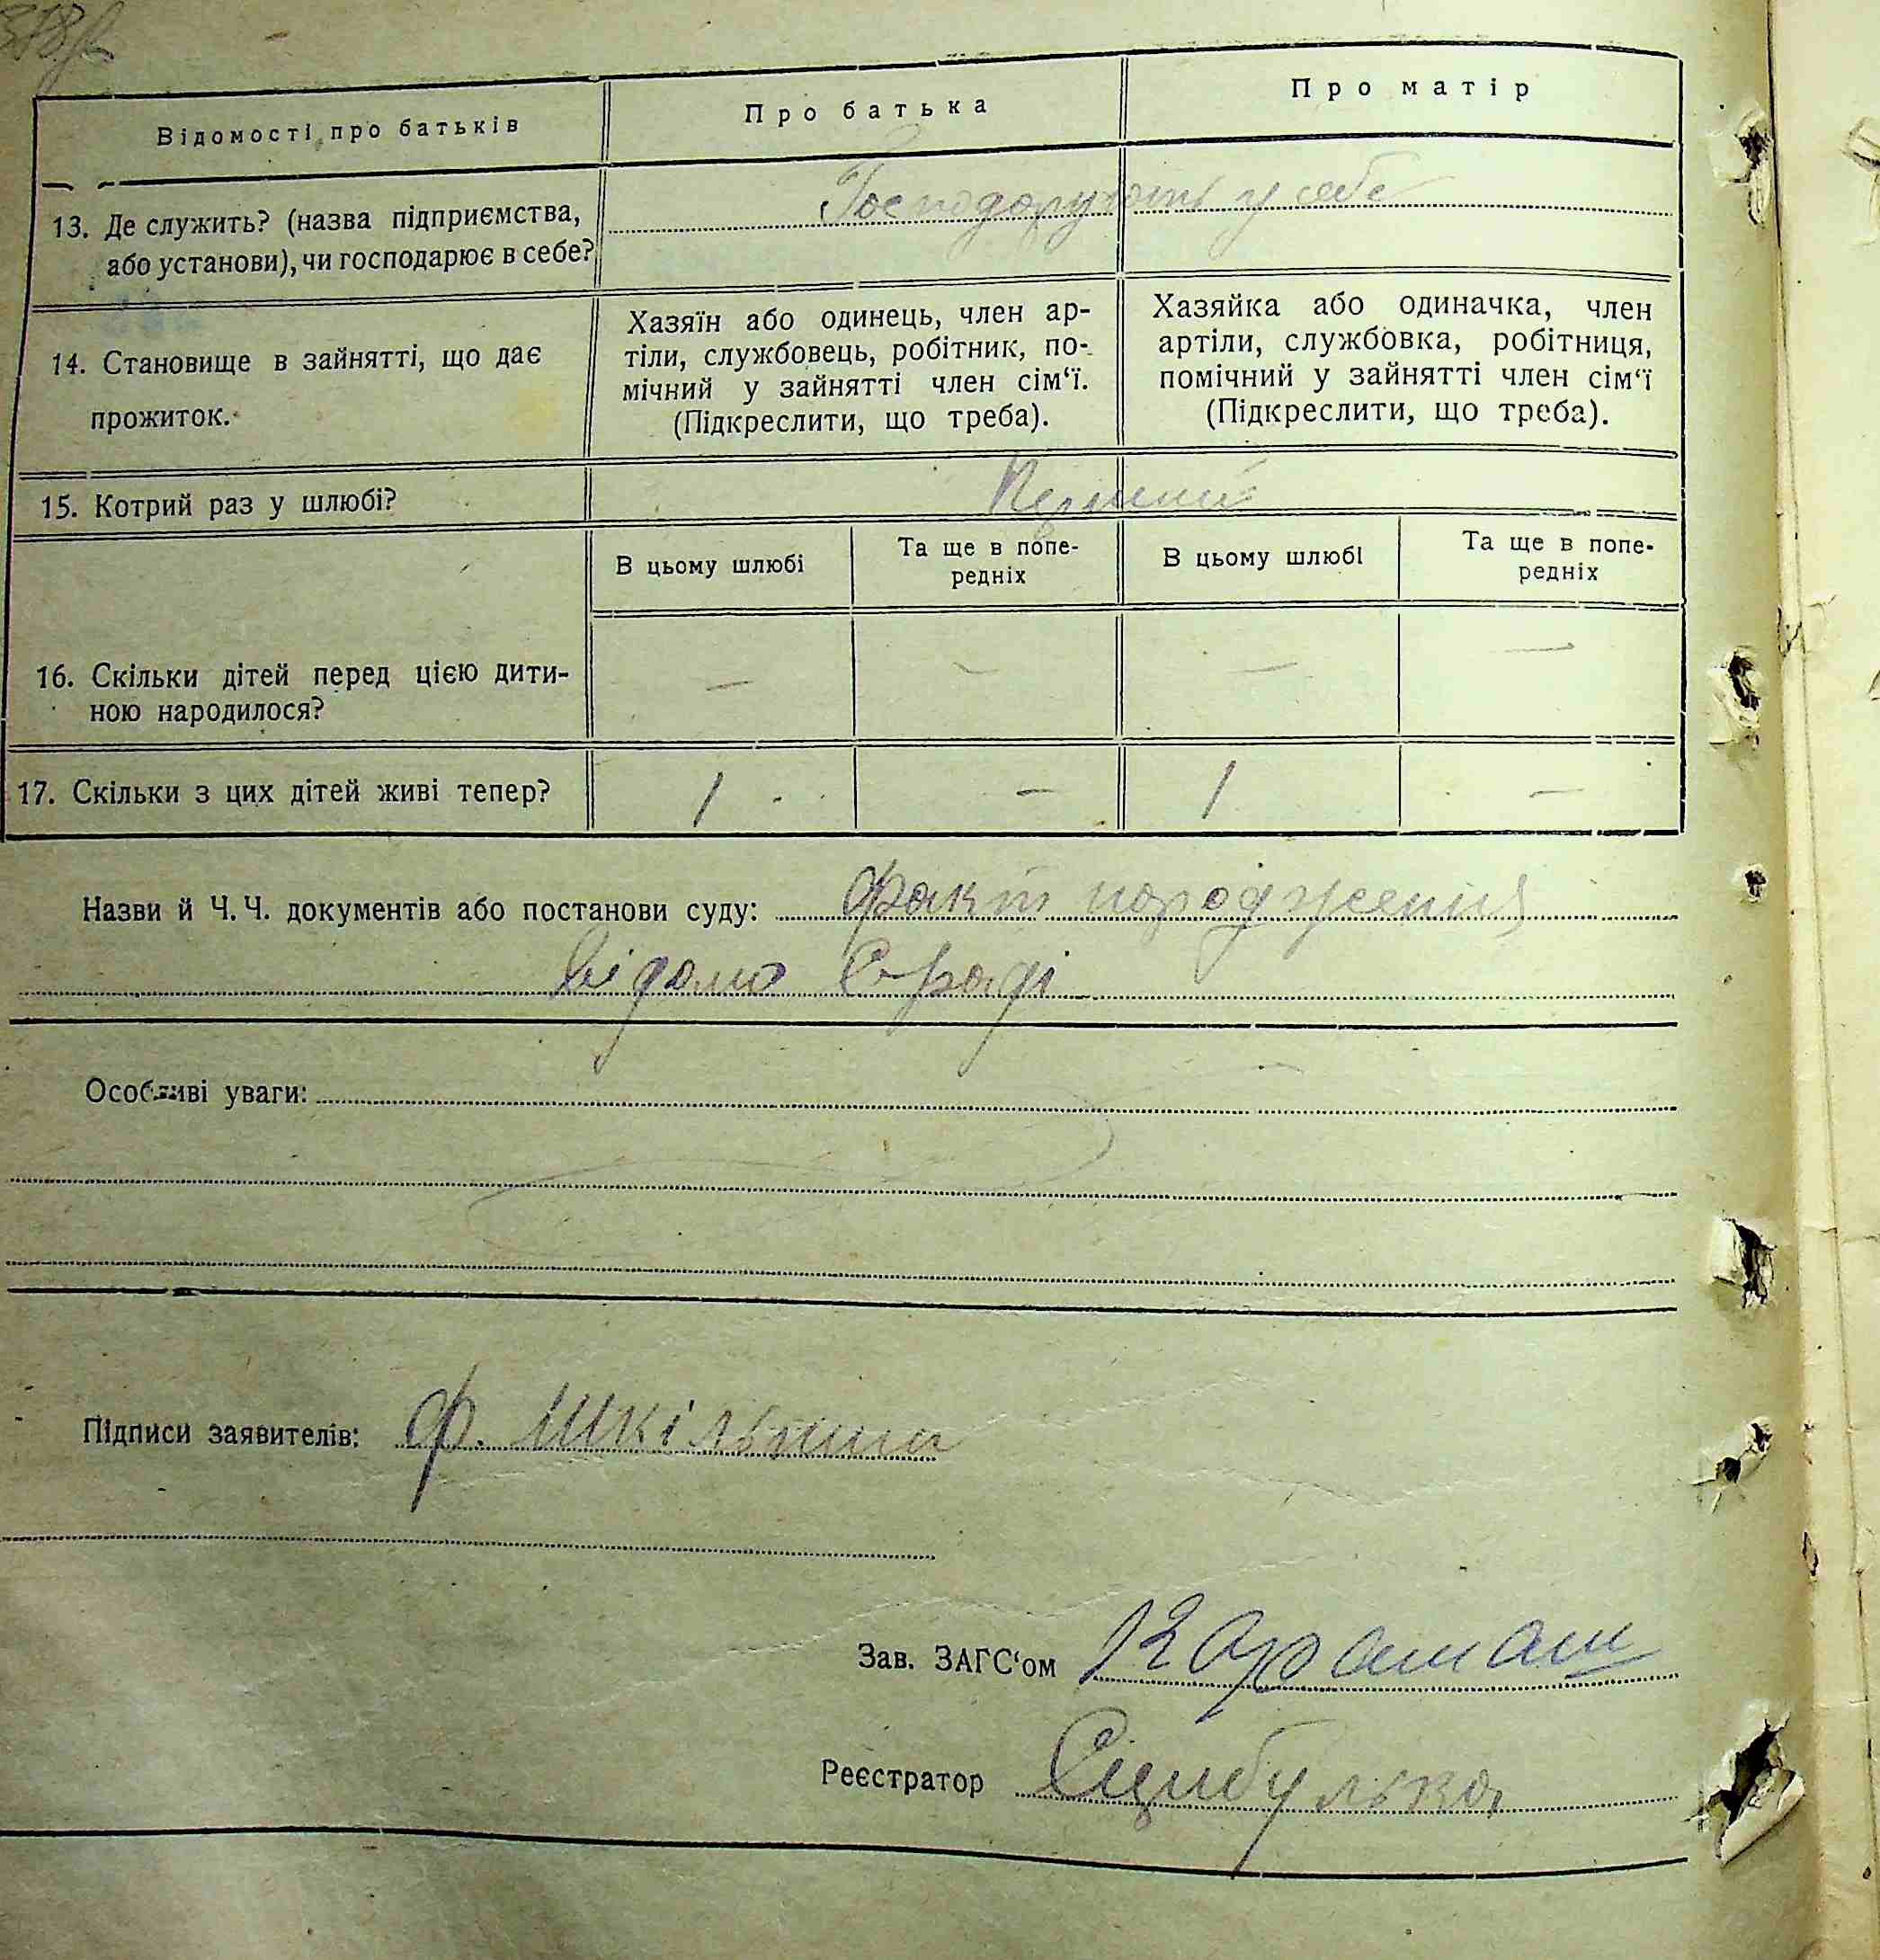 Відомості про батьків
Про батька
Про матір
13. Де служить? (назва підприємства,
або установи), чи господарює в себе?
Господорують у себе
14. Становище в зайнятті, що дає
прожиток.
Хазяїн або одинець, член ар-
тіли, службовець, робітник, по-
мічний у зайнятті член сім‘ї.
(Підкреслити, що треба).
Хазяйка або одиначка, член
артіли, службовка, робітниця,
помічний у зайнятті член сім‘ї
(Підкреслити, що треба).
15. Котрий раз у шлюбі?
Перший
В цьому шлюбі
Та ще в попе-
редніх
В цьому шлюбі
Та ще в попе-
редніх
16. Скільки дітей перед цією дити-
ною народилося?
— — — —
17. Скільки з цих дітей живі тепер?
1 — 1 —
Назви й Ч. Ч. документів або постанови суду: факт народження
відомо С-раді
Особливі уваги:
Підписи заявителів: Ф. Шкільний
Зав. ЗАГС‘ом
Реєстратор